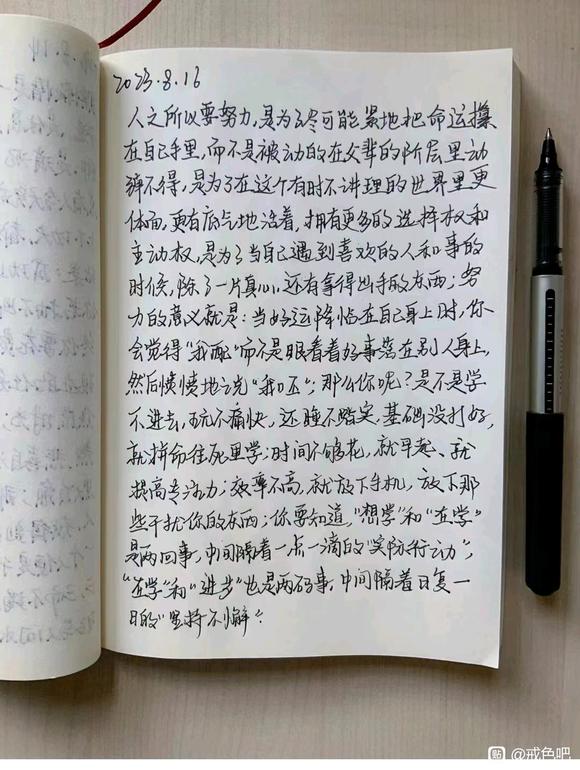 2023.8.16
人之所以要努力,是为了尽可能紧地把命运攥
在自己手里,而不是被动的在父辈的阶层里动
弹不得,是为了在这个有时不讲理的世界里更
体面,更有底气地活着,拥有更多的选择权和
主动权,是为了当自己遇到喜欢的人和事的
时候,除了一片真心,还有拿得出手的东西;努
力的意义就是:当好运降临在自己身上时,你
会觉得“我配”而不是眼看着好事落在别人身上,
然后愤愤地说“我呸”;那么你呢?是不是学
不进去,玩不痛快,还睡不踏实,基础没打好,
就拼命往死里学;时间不够花,就早起、就
提高专注力;效率不高,就放下手机,放下那
些干扰你的东西;你要知道,“想学”和“在学”
是两回事,中间隔着一点一滴的“实际行动”;
“在学”和“进步”也是两码事,中间隔着日复一
日的“坚持不懈”.
貼 @戒色吧